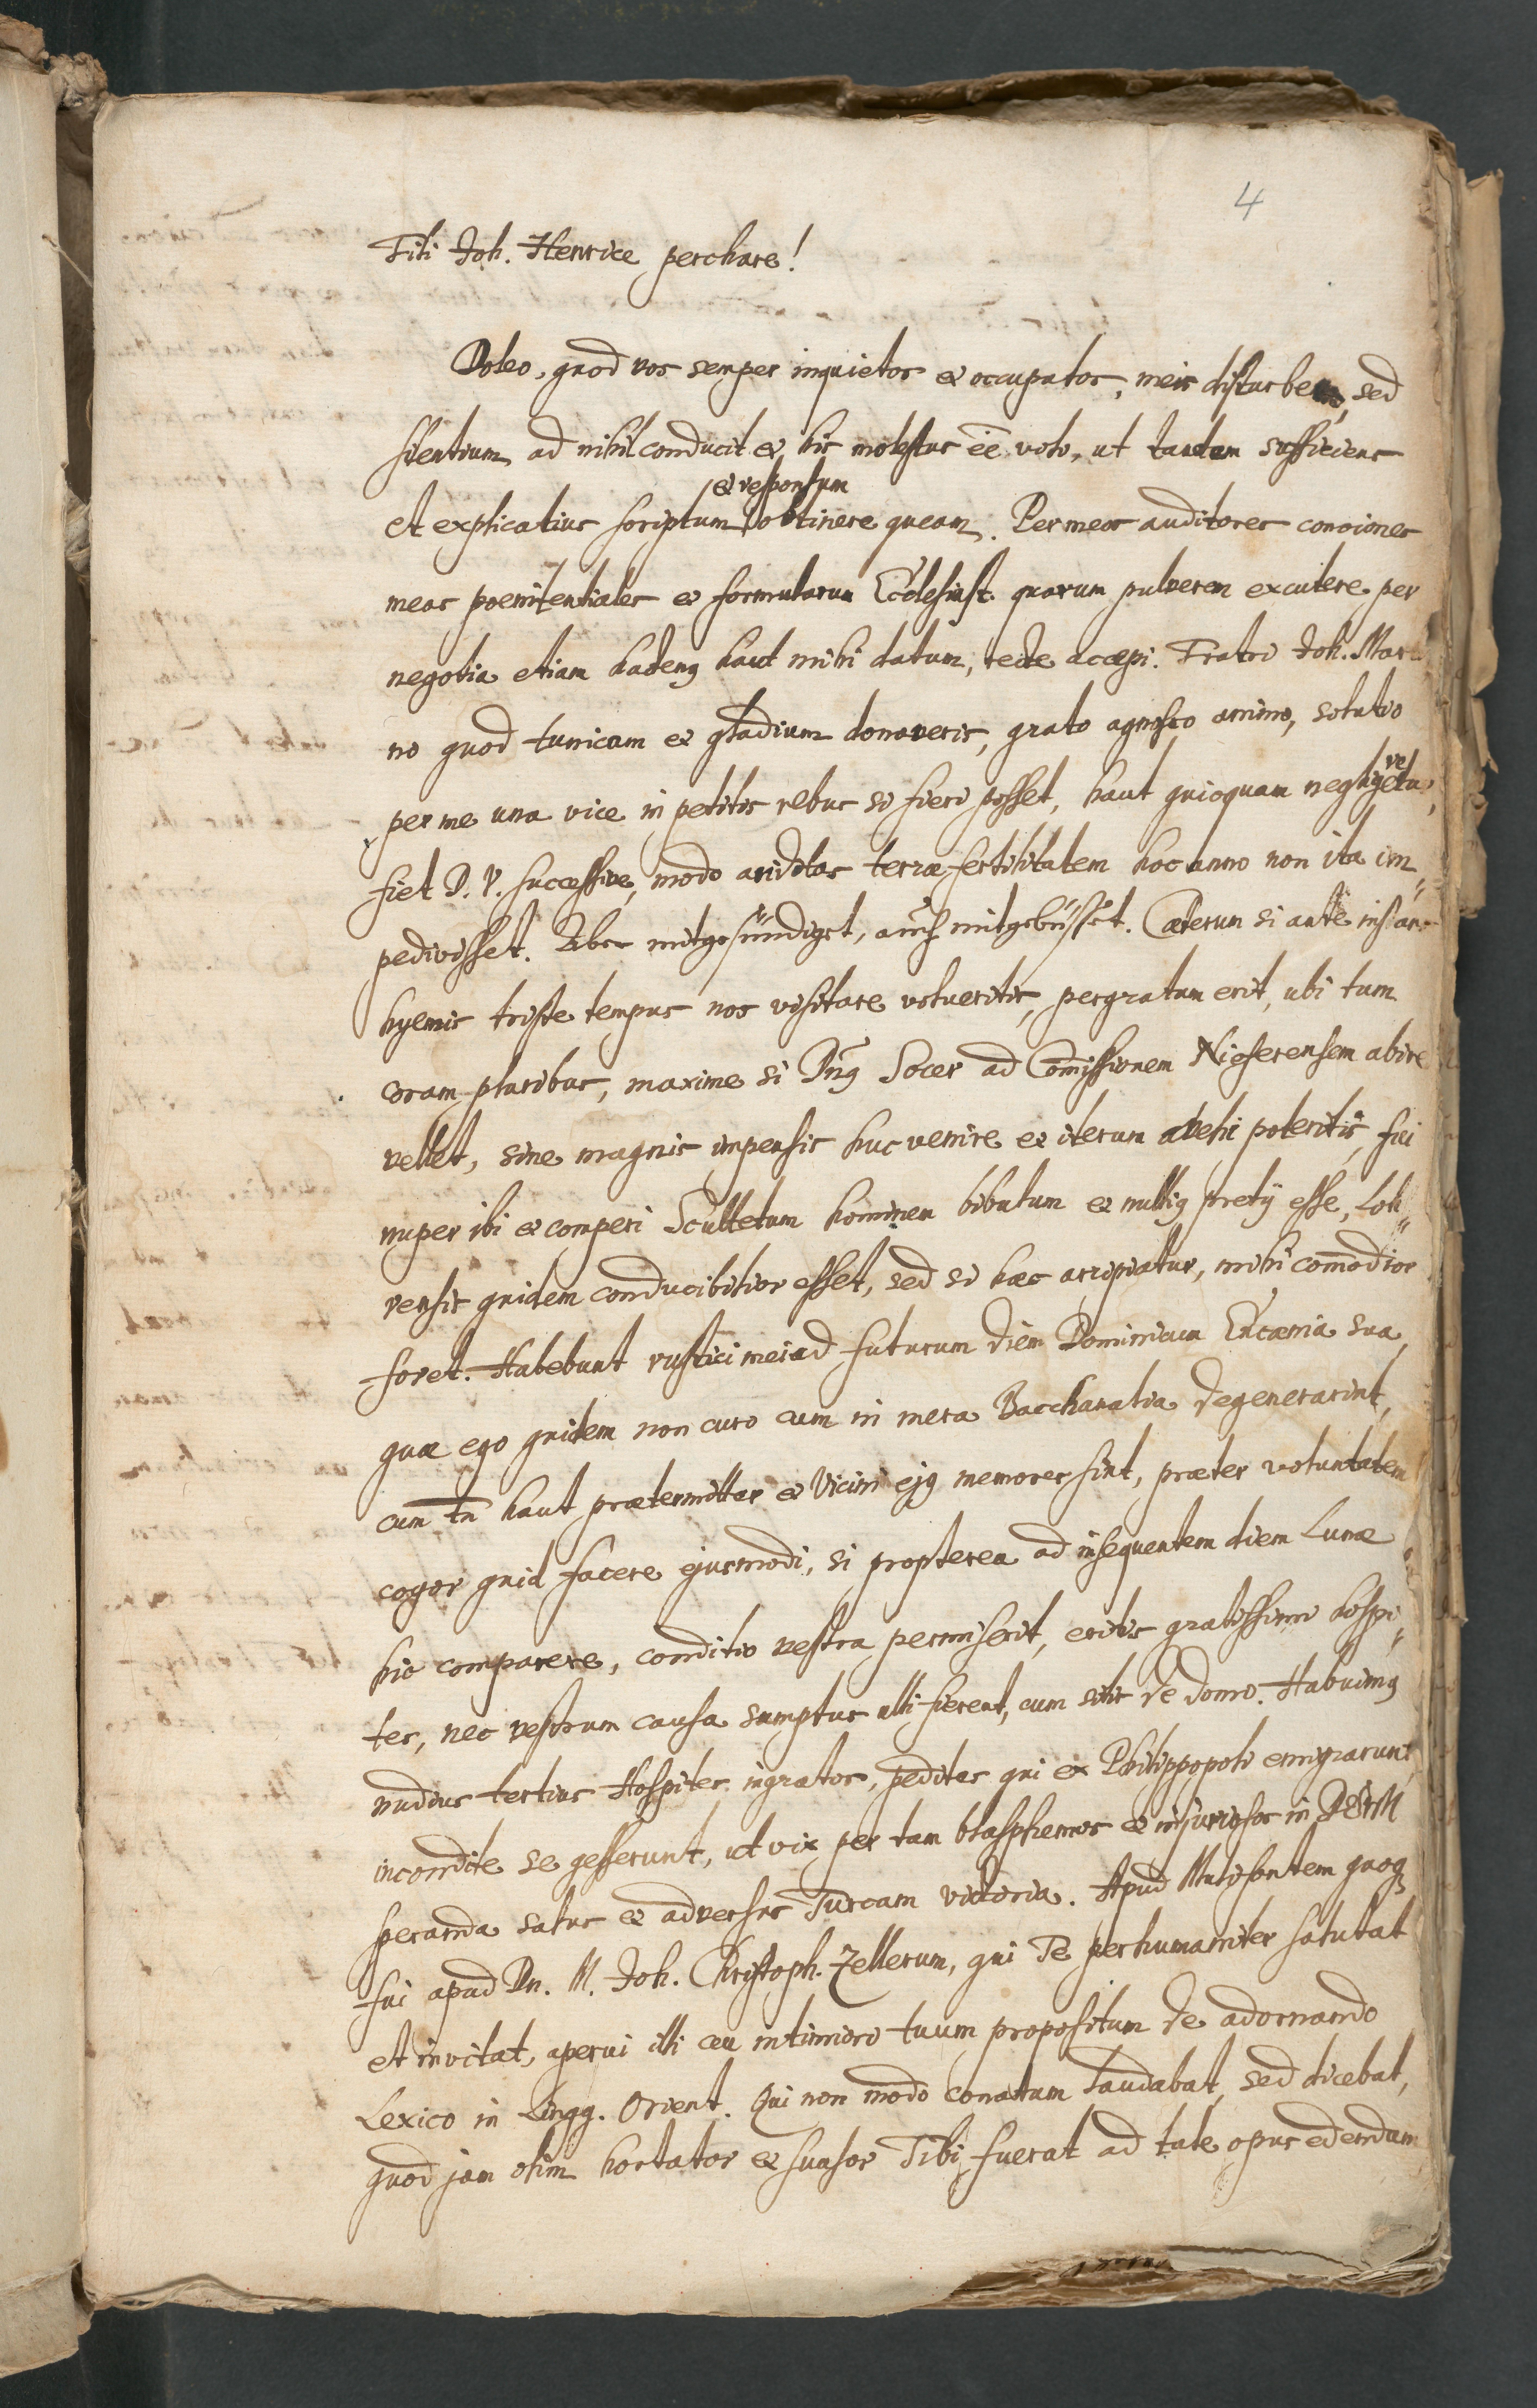 4
Fili Joh. Henrice perchare!
Doleo, quod vos semper inquietos & occupatos, meis disturbem, sed
silentium ad nihil conducit & his molestus eē volo, ut tandem sufficiens
& responsum
et explicatius scriptum obtinere queam. Per meos auditores conciones
meas poenitentiales & formularum Ecclesiast. quarum pulverem excutere per
negotia etiam hactenq haut mihi datum, recte accepi. Fratri Joh. Marti
no quod tunicam & gladium donaveris, grato agnosco animo, solutio
per me una vice in petitis rebus si fieri posset, haut quicquam negligetur,
fiet D. V. successive, modo ariditas terræ fertilitatem hoc anno non ita im„
pedivisset. Aber mitgesündiget, auch mitgebüsset. Cæterum si ante instans
hyemis triste tempus nos visitare volueritis, pergratum erit, ubi tum
coram pluribus, maxime si Dnq Socer ad Com̄issionem Nieferensem abire
vellet, sine magnis impensis huc venire & iterum abehi poteritis, fui
nuper ibi & comperi Scultetum hominem bibulum & nulliq pretij esse, Loh„
rensis quidem conducibilior esset, sed si hæc arripiatur, mihi com̄odior
foret. Habebunt rustici mei ad futurum diem Dominicum Encænia sua,
quæ ego quidem non curo cum in mera Bacchanalia degenerarint,
cum tn̄ haut prætermittar & Vicini ejq memores sint, præter voluntatem
cogor quid facere ejusmodi, si propterea ad insequentem diem Lunæ
hic comparere, conditio vestra permiserit, eritis gratissimi hospi„
tes, nec vestrum causa sumptus ulli fierent, cum sitis de domo. Habuimq
nudius tertius Hospites ingratos, pedites qui ex Philippopoli emigrarunt,
incondite se gesserunt, ut vix per tam blasphemos & injuriosos in DEUM
speranda salus & adversus Turcam victoria. Apud Mulifontem quoq
fui apud Dn. M. Joh. Christoph. Zellerum, qui Te perhumaniter salutat
et invitat, aperui illi ceu intimiori tuum propositum de adornando
Lexico in Lingg. Orient. Qui non modo conatum laudabat, sed dicebat,
quod jam olim hortator & suasor Tibi fuerat ad tale opus edendum